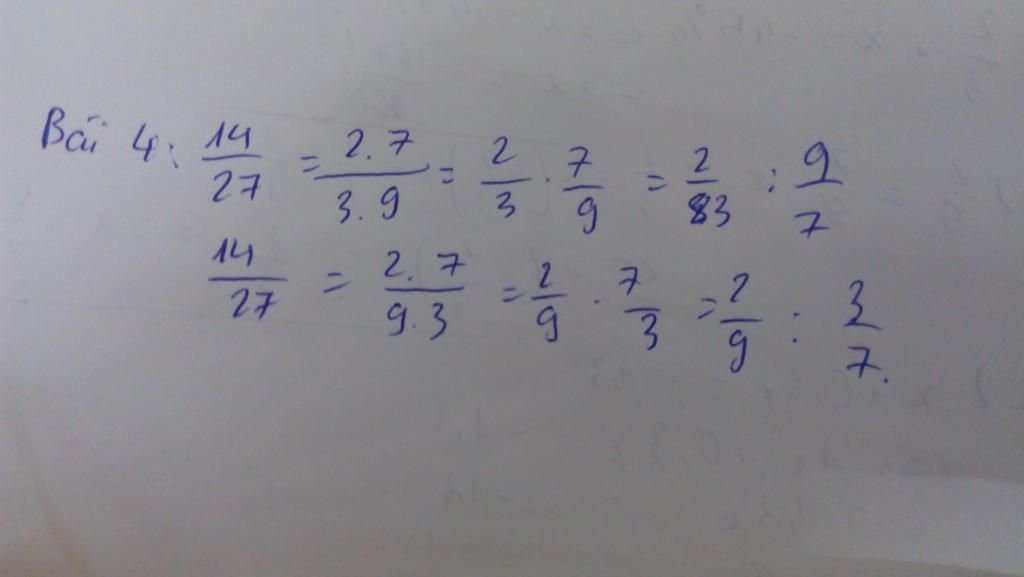 Bài 4: 14/27 = 2.7/3.9 = 2/3 . 7/9 = 2/83 : 9/7
14/27 = 2.7/9.3 = 2/9 . 7/3 = 2/9 : 3/7.